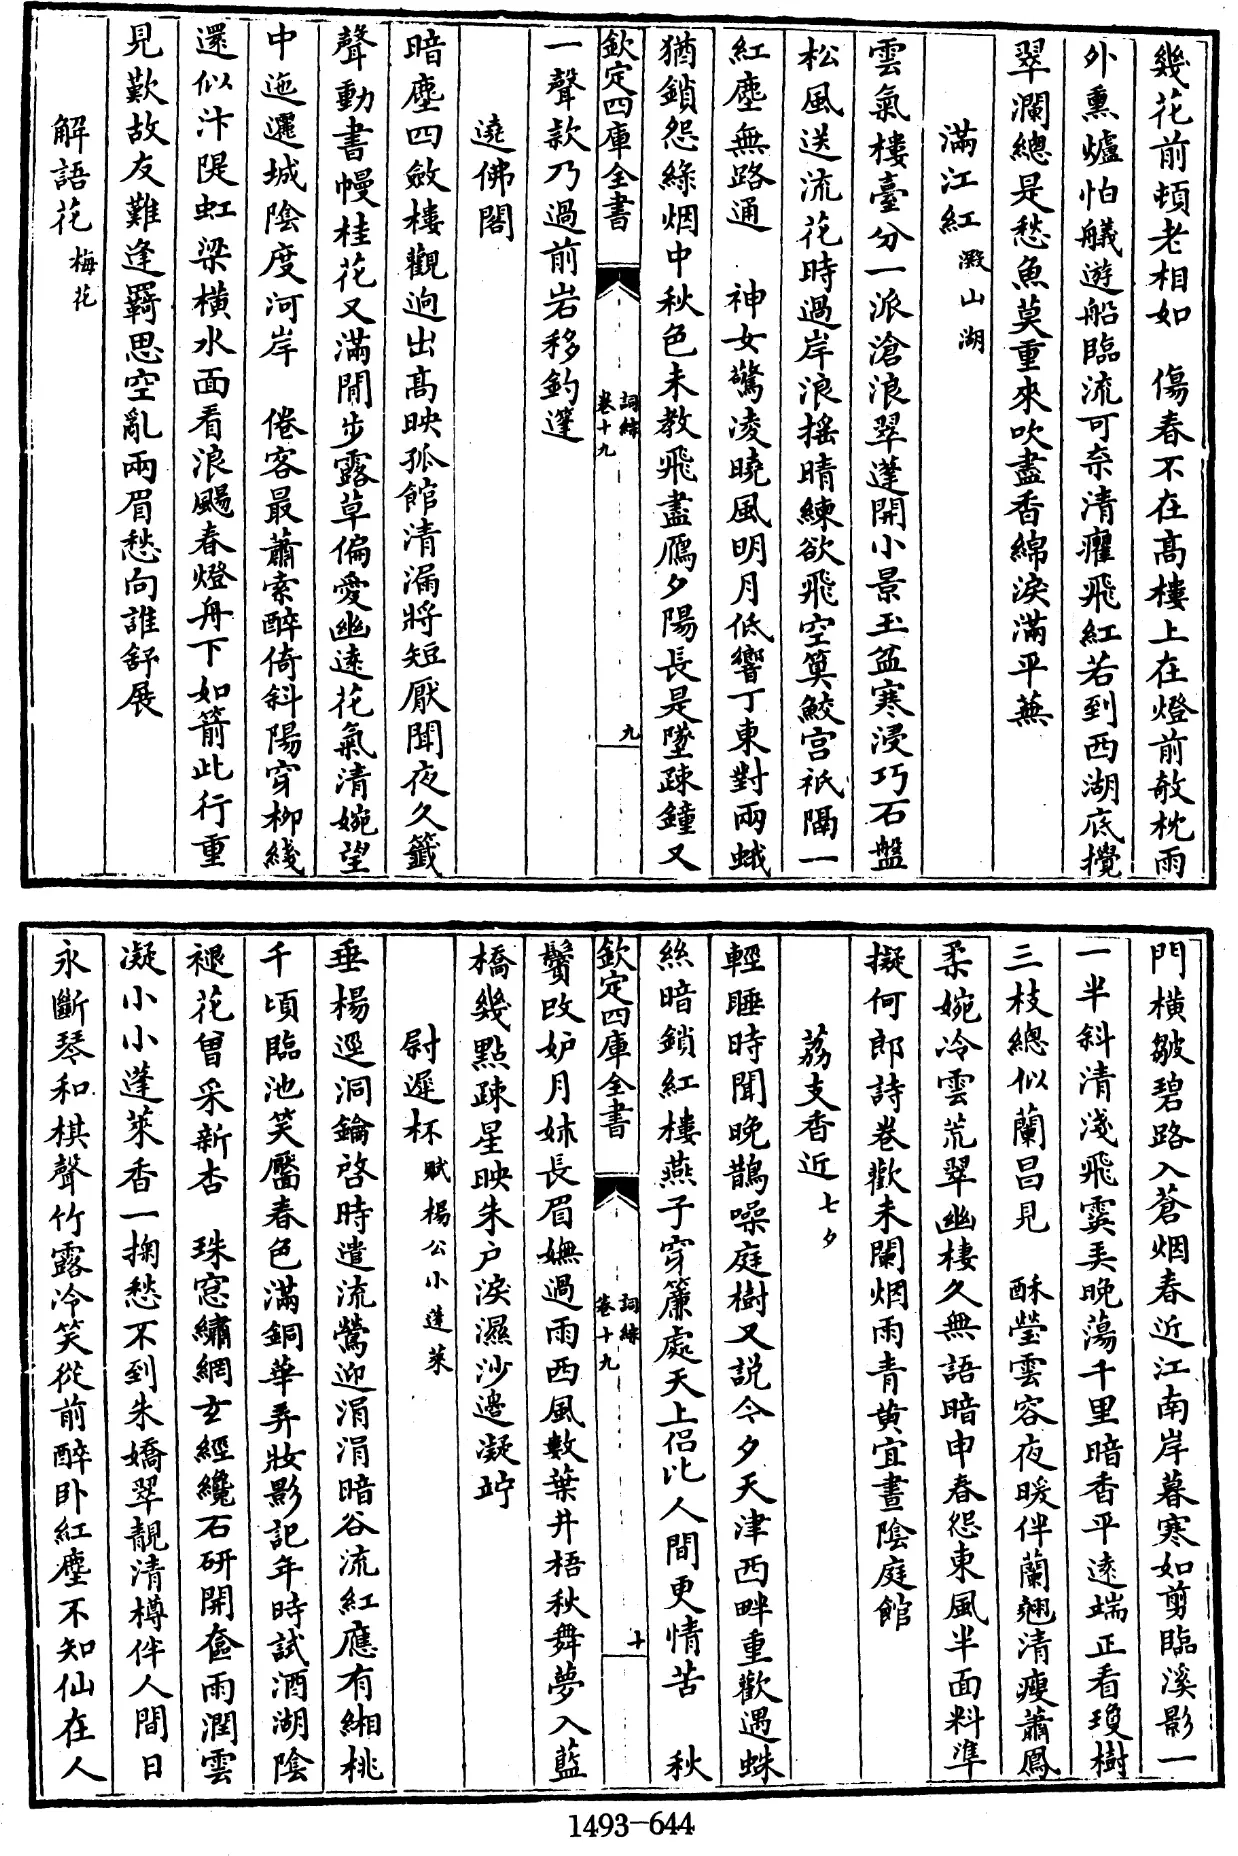 幾花前頓老相如　傷春不在高樓上在燈前敧枕雨
外熏爐怕艤遊船臨流可奈清癯飛紅若到西湖底攪
翠瀾總是愁魚莫重來吹盡香綿淚滿平蕪
滿江紅 澱山湖
雲氣樓臺分一派滄浪翠蓬開小景玉盆寒浸巧石盤
松風送流花時過岸浪搖晴練欲飛空算鮫宮秖隔一
紅塵無路通　神女驚凌曉風明月低響丁東對兩蛾
猶鎖怨綠烟中秋色未教飛盡鴈夕陽長是墜疎鐘又
欽定四庫全書　詞綜　卷十九　九
一聲款乃過前岩移釣篷
遶佛閣
暗塵四斂樓觀迥出高映孤館清漏將短厭聞夜久籤
聲動書幔桂花又滿閒步露草偏愛幽遠花氣清婉望
中迤邐城陰度河岸　倦客最蕭索醉倚斜陽穿柳綫
還似汴隄虹梁橫水面看浪颺春燈舟下如箭此行重
見歎故友難逢羇思空亂兩眉愁向誰舒展
解語花 梅花
門橫皺碧路入蒼烟春近江南岸暮寒如剪臨溪影一
一半斜清淺飛霙弄晚蕩千里暗香平遠端正看瓊樹
三枝總似蘭昌見　酥瑩雲容夜暖伴蘭翹清瘦蕭鳳
柔婉冷雲荒翠幽棲久無語暗申春怨東風半面料準
擬何郎詩卷歡未闌烟雨青黃宜晝陰庭館
荔支香近 七夕
輕睡時聞晚鵲噪庭樹又說今夕天津西畔重歡遇蛛
絲暗鎖紅樓燕子穿簾處天上侶比人間更情苦　秋
欽定四庫全書　詞綜　卷十九　十
鬢改妒月姊長眉嫵過雨西風數葉井梧秋舞夢入藍
橋幾點疎星映朱户淚濕沙邊凝竚
尉遲杯 賦楊公小蓬萊
垂楊逕洞鑰啓時遣流鶯迎涓涓暗谷流紅應有緗桃
千頃臨池笑靨春色滿銅華弄妝影記年時試酒湖陰
褪花曾采新杏　珠窓繡網玄經纔石研開奩雨潤雲
凝小小蓬萊香一掬愁不到朱嬌翠靚清樽伴人間日
永斷琴和棋聲竹露冷笑從前醉臥紅塵不知仙在人
1493-644